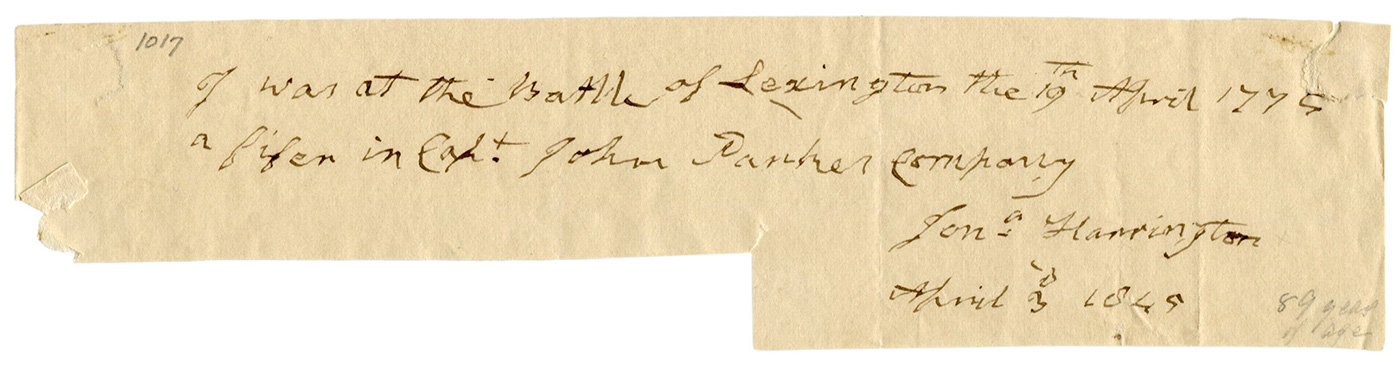 1017
I was at the Battle of Lexington the 19th April 1775
a fifer in Capt. John Parker Company
Jona. Harrington
April 3d 1848
89 years
of age